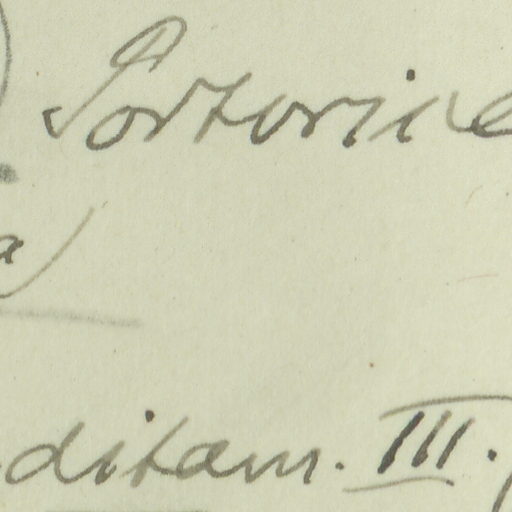 Sartoriae
a)
ditam. III.